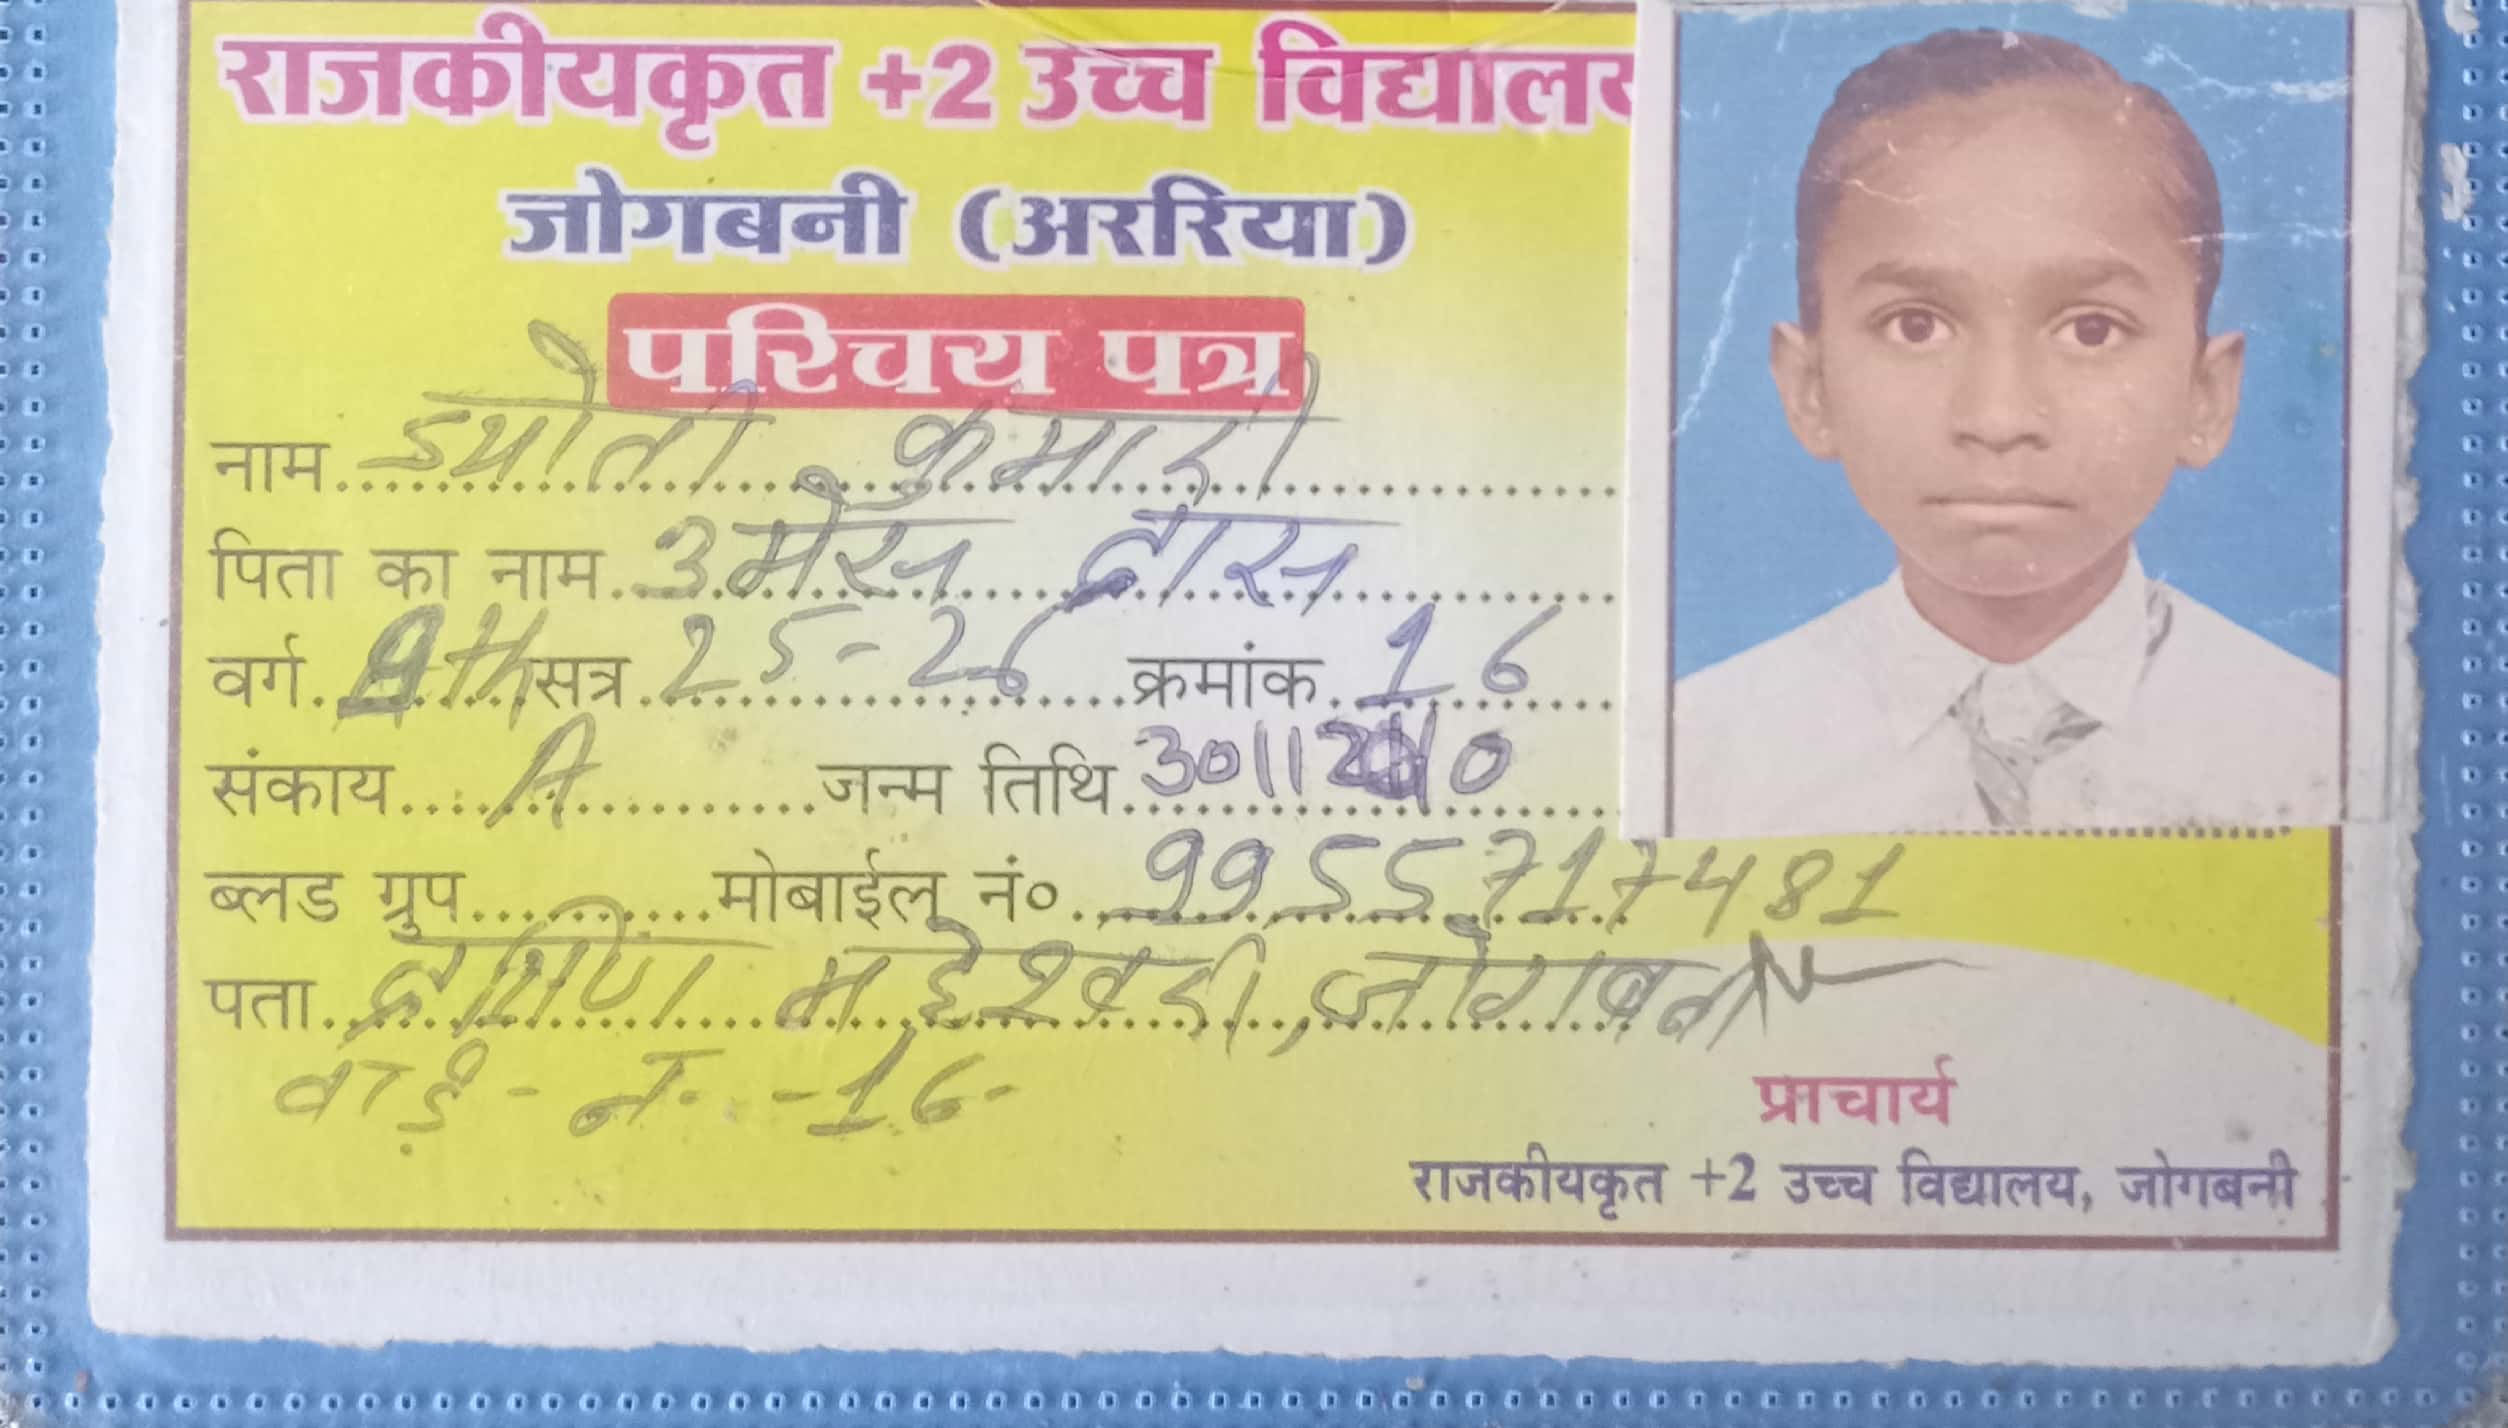 राजकीयकृत +2 उच्च विद्यालय
जोगबनी (अररिया)
परिचय पत्र
नाम ज्योती कुमारी
पिता का नाम उमेस दास
वर्ग 9th सत्र 25-26 क्रमांक 16
संकाय A जन्म तिथि
ब्लड ग्रुप मोबाईल नं० 9955717481
पता दक्षिण महेश्वरी, जोगबनी
वार्ड - न. - 16
प्राचार्य
राजकीयकृत +2 उच्च विद्यालय, जोगबनी